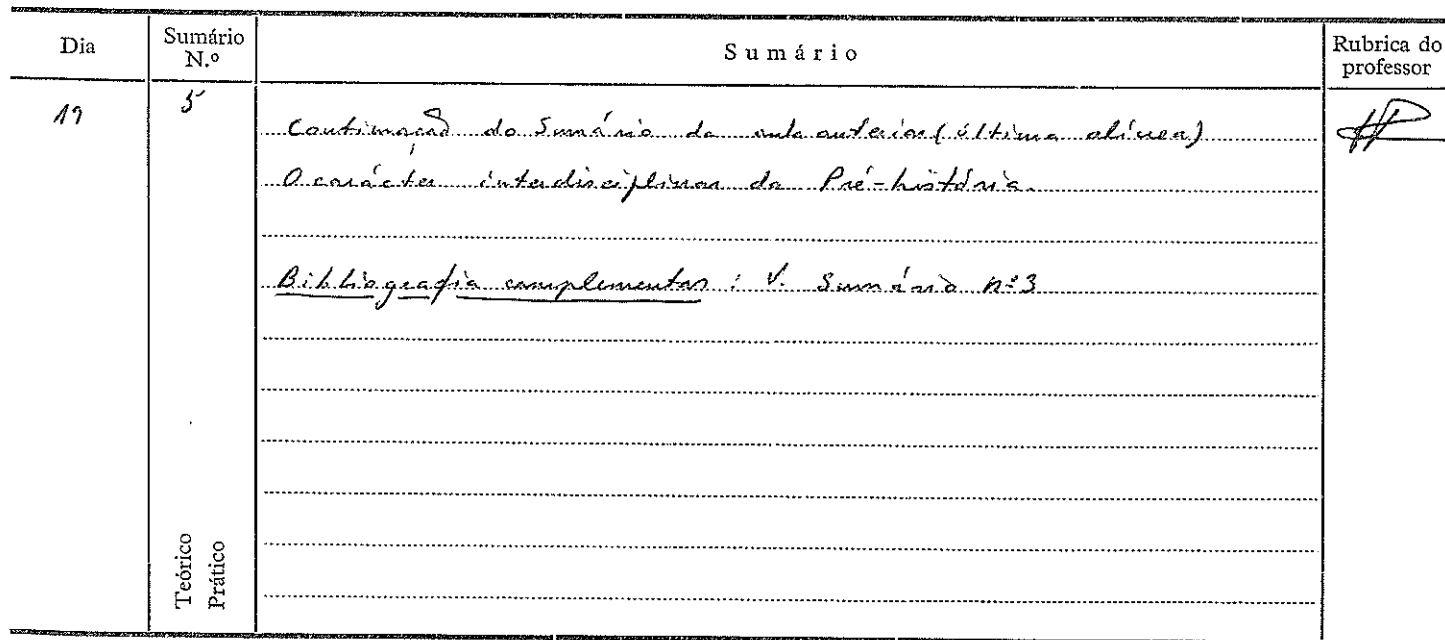 Dia
Sumário N.º
Sumário
Rubrica do professor
19
5
Continuação do Sumário da aula anterior (última alínea)
O carácter interdisciplinar da Pré-história.
Bibliografia complementar: V. Sumário nº 3
Teórico
Prático